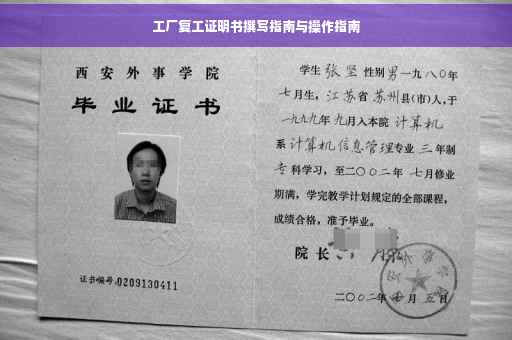 工厂复工证明书撰写指南与操作指南
西安外事学院
毕业证书
证书编号:0209130411
学生 张坚 性别 男 一九八〇年
七月生，江苏省 苏州县(市)人,于
一九九九年 九月入本院 计算机
系 计算机信息管理专业 三 年制
专科学习，至二〇〇二年 七月修业
期满，学完教学计划规定的全部课程，
成绩合格，准予毕业。
院长
二〇〇二年 月 五日